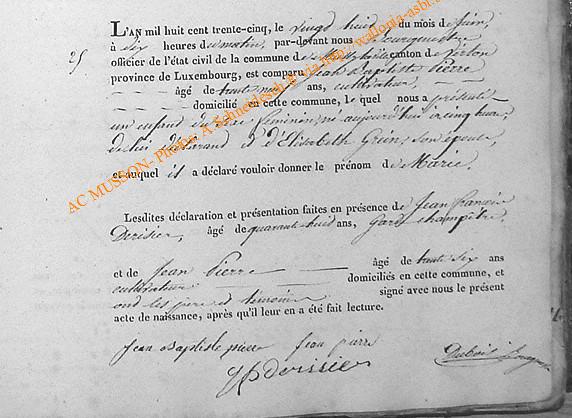 25
L'AN mil huit cent trente-cinq, le vingt huit du mois de juin,
à six heures du matin, par-devant nous Bourgmestre
officier de l'état civil de la commune de canton de Virton
province de Luxembourg, est comparu Jean Baptiste Pierre
âgé de trente neuf ans, cultivateur,
domicilié en cette commune, le quel nous a présenté
un enfant du sexe féminin, né aujourd'hui à cinq heures
de lui déclarant et d'Elisabeth Grein, son épouse,
et auquel il a déclaré vouloir donner le prénom de Marie.
Lesdites déclaration et présentation faites en présence de Jean François
Derisier, âgé de quarante-huit ans, garde champêtre,
et de Jean Pierre âgé de trente six ans
cultivateur domiciliés en cette commune, et
ont les père et témoins signé avec nous le présent
acte de naissance, après qu'il leur en a été fait lecture.
Jean Baptiste pierre Jean pierre
Derisier
AC MUSSON- Photos: A Schneidesch © via http://wallonia-asbl